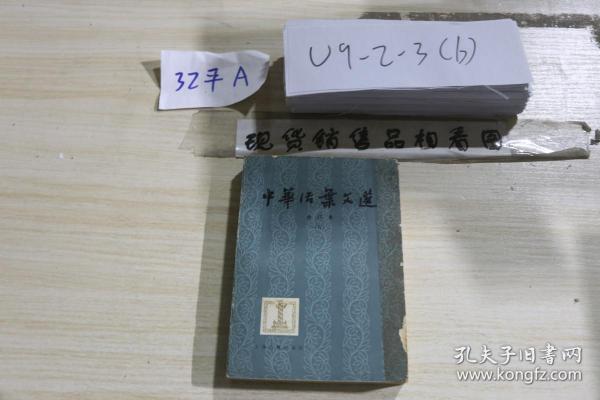 32平A
U9-2-3(b)
现货销售品相看图
中華活葉文選
孔夫子旧书网
www.kongfz.com